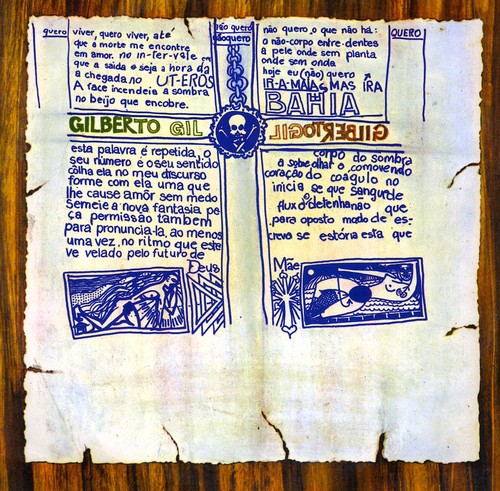 quero
viver, quero viver, até
que a morte me encontre
em amor, no in-fer-vale em
que a saída e seja a hora da
a chegada no UT-EROS
A face incendeia a sombra
no beijo que encobre.
não quero
nãoquero
não quero, o que não há:
o não-corpo entre-dentes
a pele onde sem planta
onde sem onda
hoje eu (não) quero
IR-A-MAIAS MAS IRA
BAHIA
QUERO
GILBERTO GIL
GILBERTOGIL
esta palavra é repetida, o
seu número é o seu sentido
colha ela no meu discurso
forme com ela uma que
lhe cause amor sem medo
Semeie a nova fantasia, pe-
ça permissão também
para pronuncia-la, ao menos
uma vez, no ritmo que este-
ve velado pelo futuro de
Deus
corpo do sombra
a sobre olhar o comovendo
coração do coágulo no
inicia se que sangue de
fluxo detenha não que
para oposto modo de es-
crevo se estória esta que
Mãe